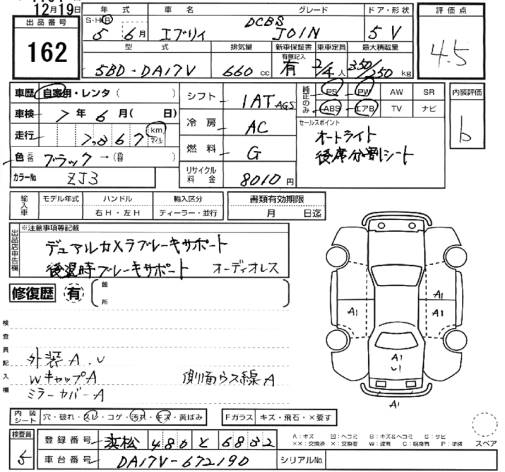 12月19日
出品番号
162
年式 車名 グレード ドア・形状
S・H・R 5年 6月 エブリィ DCBS JOIN 5 V
型式 排気量 新車保証書 有無記入 乗車定員 最大積載量
5BD-DA17V 660cc 有 2/4人 350/250kg
評価点
4.5
車歴 自家用・レンタ( )
車検 7年 6月( 日)
走行 km マイル
色 ブラック→( )
カラーNo ZJ3
シフト 1AT AGS
冷房 AC
燃料 G
リサイクル料金 8010円
純正のみ PS PW AW SR
ABS エアB TV ナビ
セールスポイント
オートライト
後席分割シート
内装評価
b
輸入車 モデル年式 ハンドル 輸入区分
右H・左H ディーラー・並行
書類有効期限
月 日迄
出品店申告欄
※注意事項等記載
デュアルカメラブレーキサポート
後退時ブレーキサポート オーディオレス
修復歴 有 箇所
検査員記入欄
外装A.U
WキャップA 側面ウス線A
ミラーカバーA
A1
A1
A1
A1
U1
内装シート 穴・破れ・スレ・コゲ・汚れ・キズ・黄ばみ
Fガラス キズ・飛石・×要す
スペア
検査員
登録番号 浜松 480 と 6832
車台番号 DA17V-672190
シリアルNo